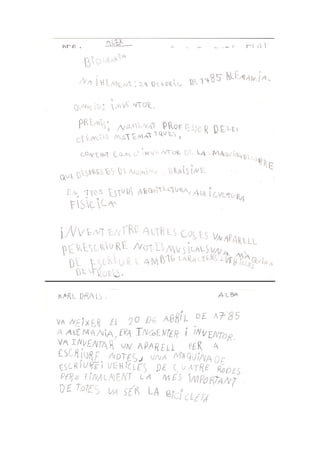 ALEX
Biografia
NAIXEMENT: 20 D'ABRIL DE 1785 ALEMANIA.
OFICI: INVENTOR.
PREMIS: NOMENAT PROFESSOR DE LES
CIENCIES MATEMATIQUES,
CONEGUT COM L'INVENTOR DE LA MAQUINA DE CORRE
QUE DESPRES ES DENOMINA DRAISINE.
EN 1803 ESTUDI ARQUITECTURA, AGRICULTURA
FISICICA.
INVENT ENTRE ALTRES COSES UN APARELL
PER ESCRIURE NOTES MUSICALS UNA MAQUINA
DE ESCRIURE AMB 16 CARACTERS I VEHICLES
DE 4 RODES.
KARL DRAIS. ALBA
VA NEIXER EL 20 DE ABRIL DE 1785
A ALEMANIA, ERA INGENIER I INVENTOR.
VA INVENTAR UN APARELL PER A
ESCRIURE NOTES, UNA MAQUINA DE
ESCRIURE I VEHICLES DE CUATRE RODES.
PERO FINALMENT LA MES IMPORTANT
DE TOTES VA SER LA BICICLETA